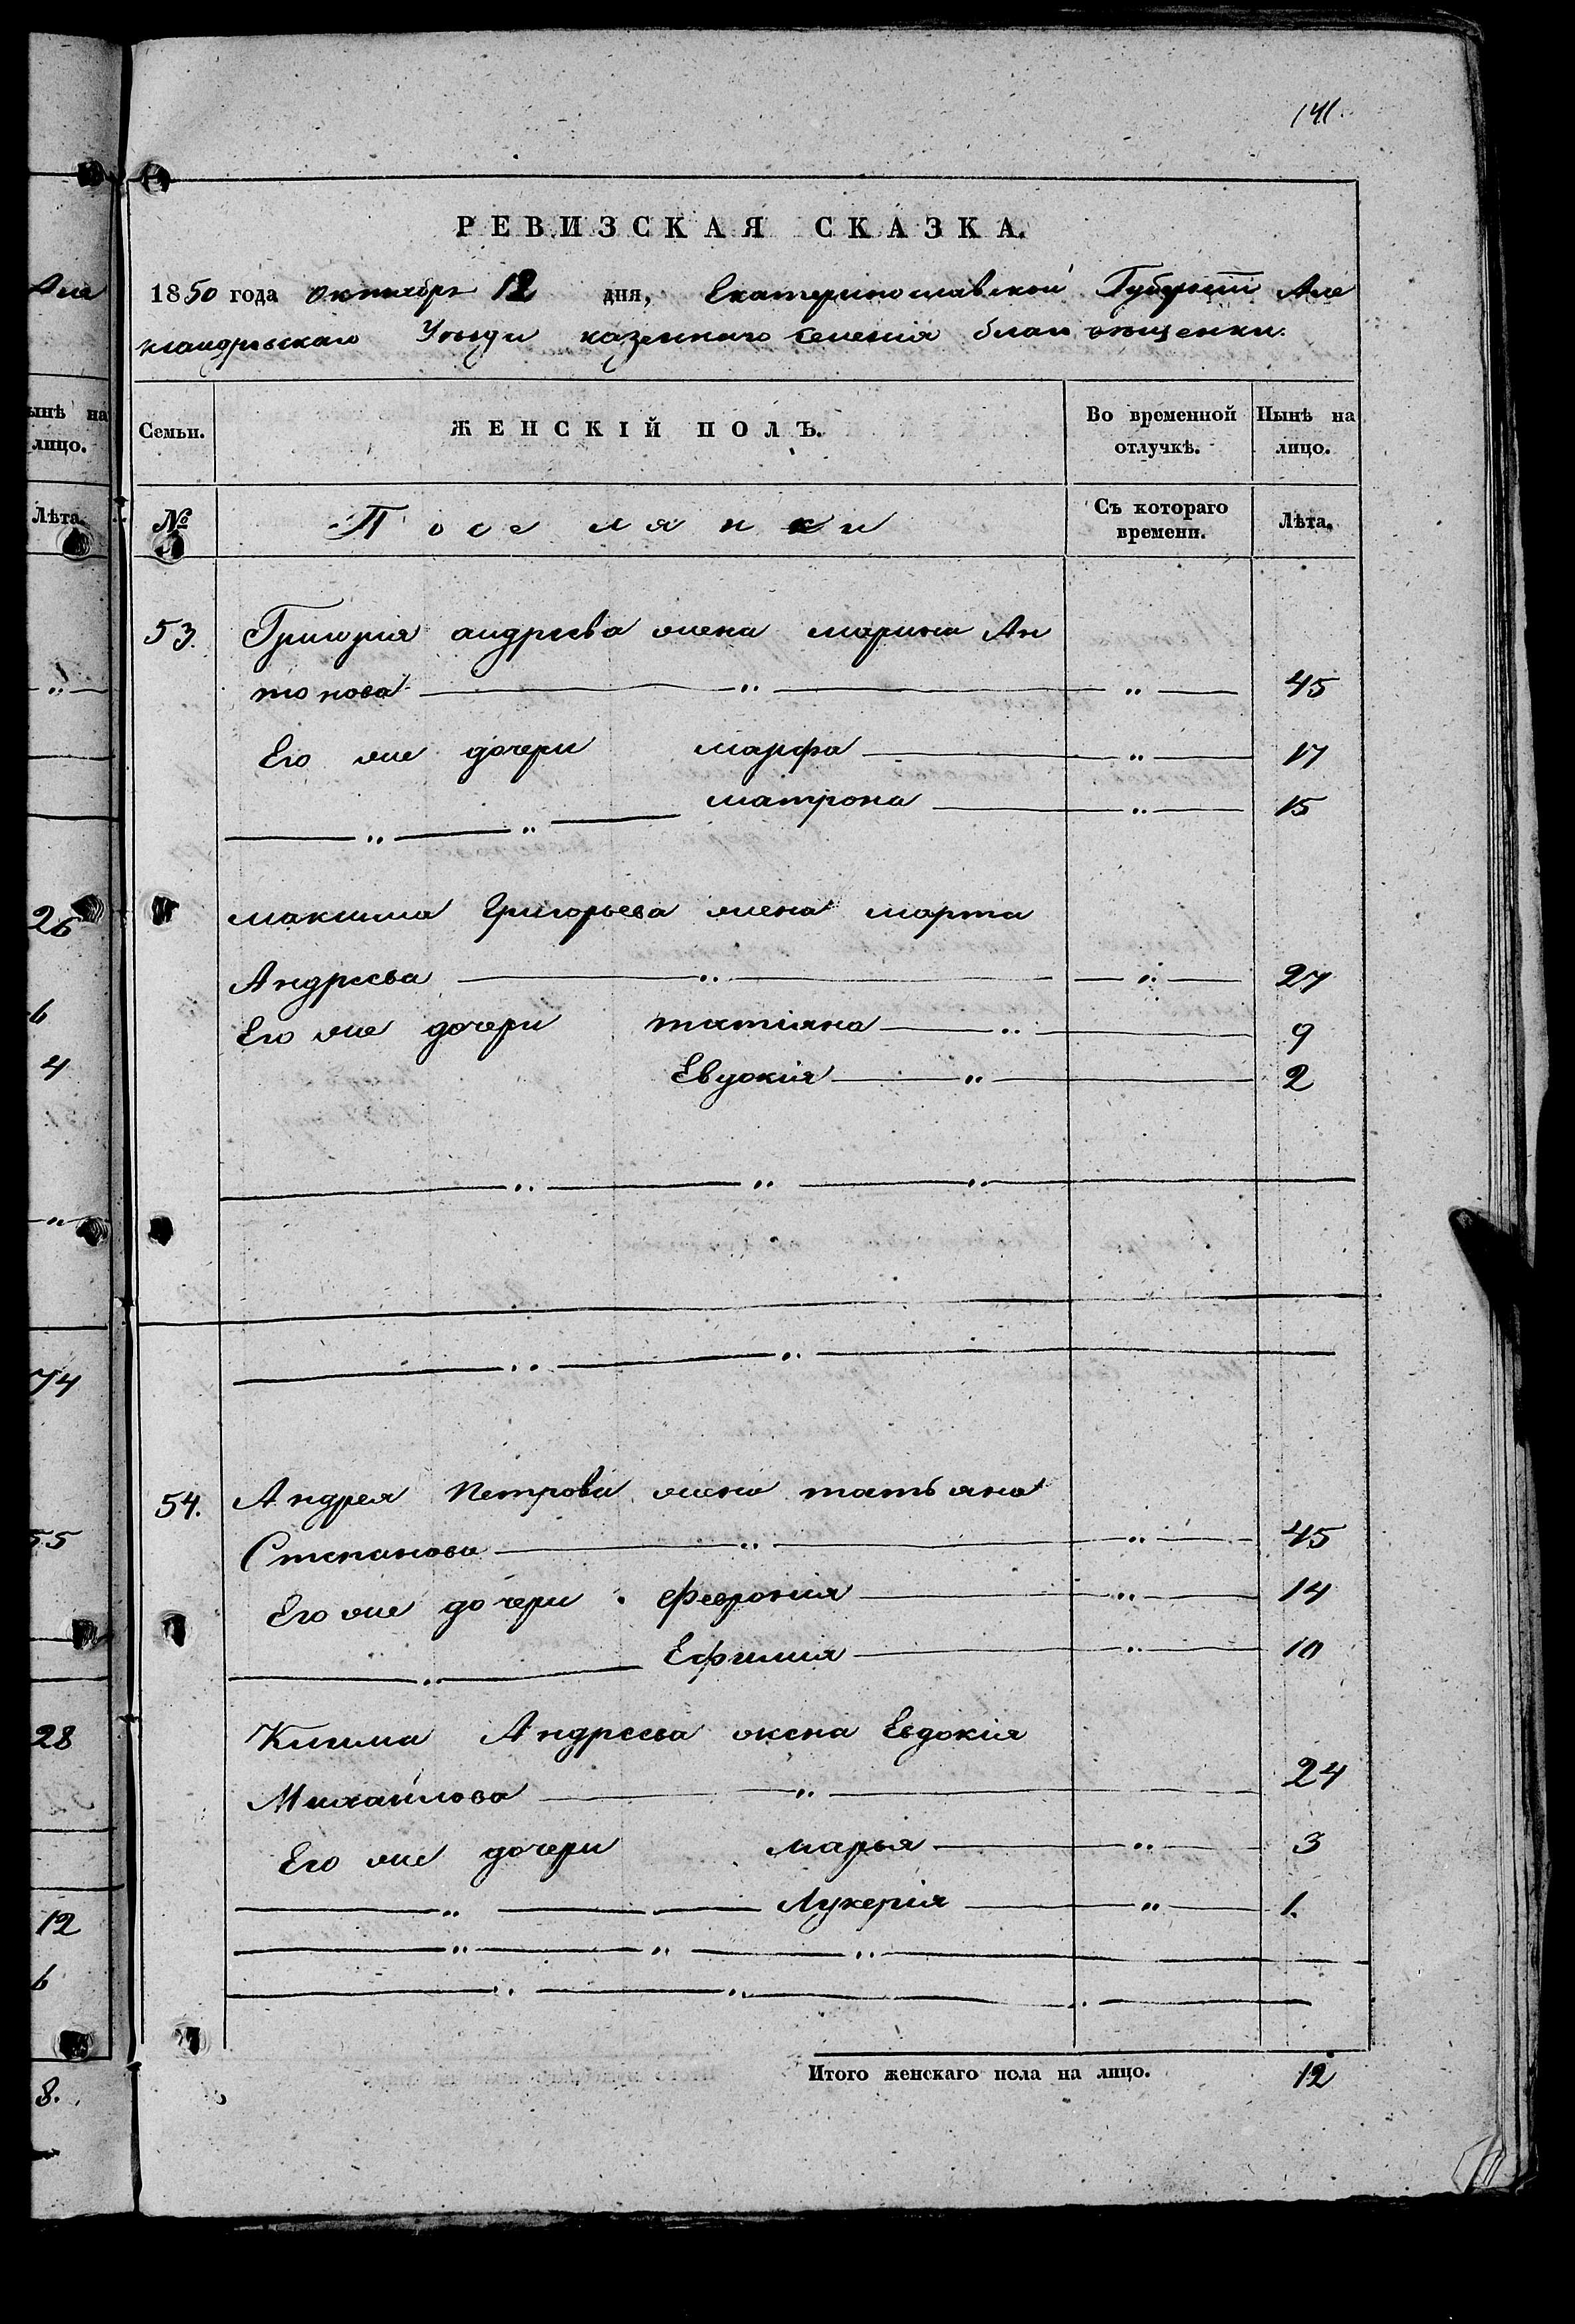 141.
РЕВИЗСКАЯ СКАЗКА.
1850 года октября 12 дня, Екатеринославской Губернiи Але
ксандровскаго Уѣзда казеннаго селенiя благовѣщенки.
Семьи. ЖЕНСКІЙ ПОЛЪ. Во временной отлучкѣ. Нынѣ на лицо.
№ Поселянки Съ котораго времени. Лѣта.
53. Григорiя андреева жена марина Ан
тонова — „ — „ — 45
Его же дочери марфа — „ — 17
— „ — „ — матрона — „ — 15
максима Григорьева жена марта
Андреева — „ — „ — 27
Его же дочери татiяна — „ — 9
Евдокiя — „ — 2
— „ — „ — „ —
— „ — „ —
54. Андрея Петрова жена татьяна
Степанова — „ — „ — 45
Его же дочери феврония — „ — 14
— „ — Ефимiя — „ — 10
Клима Андреева жена Евдокiя
Михайлова — „ — 24
Его же дочери марья — „ — 3
— „ — Лукерiя — „ — 1.
— „ — „ — „ —
— „ — „ — „ —
Итого женскаго пола на лицо. 12
Але
ынѣ на
лицо.
Лѣта.
— „ —
26
6
4
— „ —
74
55
28
12
6
8.